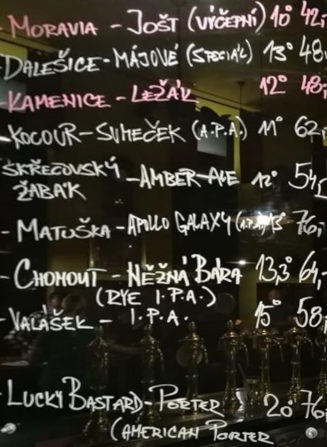 - MORAVIA - JOŠT (VÝČEPNÍ) 10° 42,-
- DALEŠICE - MÁJOVÉ (SPECIÁL) 13° 48
- KAMENICE - LEŽÁK 12° 48,-
- KOCOUR - SUMEČEK (A.P.A.) 11° 62,-
SKŘEČOVSKÝ
ŽABÁK - AMBER ALE 12° 54,-
- MATUŠKA - APOLLO GALAXY (A.P.A.) 13° 76,-
- CHOMOUT - NĚŽNÁ BÁRA 13,3° 64,-
(RYE I.P.A.)
- VALÁŠEK - I.P.A. 15° 58,-
- LUCKY BASTARD - PORTER 20° 76,-
(AMERICAN PORTER